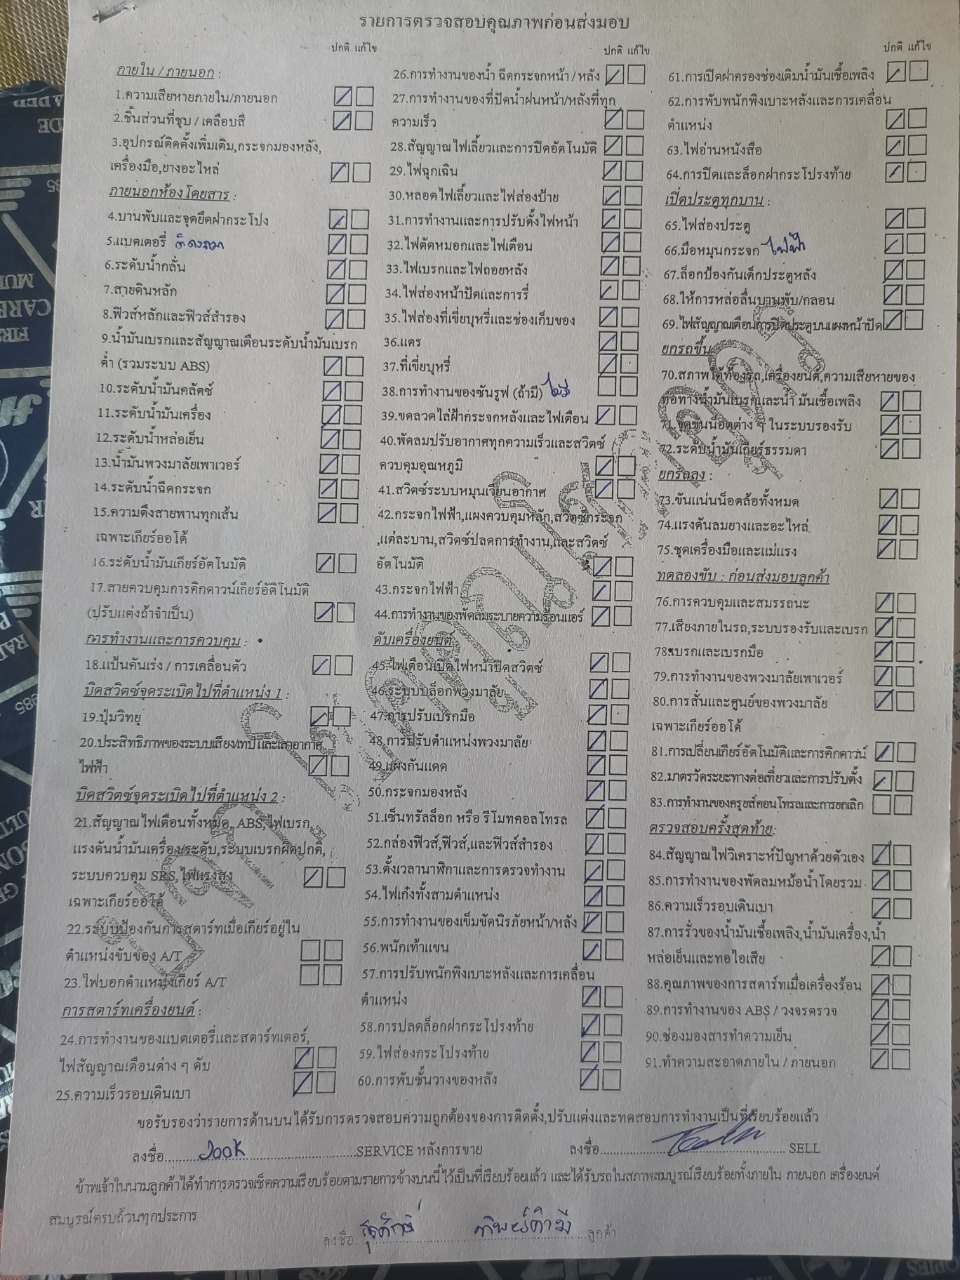 รายการตรวจสอบคุณภาพก่อนส่งมอบ
ปกติ แก้ไข
ภายใน / ภายนอก :
1.ความเสียหายภายใน/ภายนอก
2.ชิ้นส่วนที่ชุบ / เคลือบสี
3.อุปกรณ์ติดตั้งเพิ่มเติม,กระจกมองหลัง,
เครื่องมือ,ยางอะไหล่
ภายนอกห้องโดยสาร :
4.บานพับและจุดยึดฝากระโปง
5.แบตเตอรี่
6.ระดับน้ำกลั่น
7.สายดินหลัก
8.ฟิวส์หลักและฟิวส์สำรอง
9.น้ำมันเบรกและสัญญาณเตือนระดับน้ำมันเบรก
ต่ำ (รวมระบบ ABS)
10.ระดับน้ำมันคลัตช์
11.ระดับน้ำมันเครื่อง
12.ระดับน้ำหล่อเย็น
13.น้ำมันพวงมาลัยเพาเวอร์
14.ระดับน้ำฉีดกระจก
15.ความตึงสายพานทุกเส้น
เฉพาะเกียร์ออโต้
16.ระดับน้ำมันเกียร์อัตโนมัติ
17.สายควบคุมการคิกดาวน์เกียร์อัติโนมัติ
(ปรับแต่งถ้าจำเป็น)
การทำงานและการควบคุม :
18.แป้นคันเร่ง / การเคลื่อนตัว
บิดสวิตซ์จุดระเบิดไปที่ตำแหน่ง 1 :
19.ปุ่มวิทยุ
20.ประสิทธิภาพของระบบเสียง/เทปและเสาอากาศ
ไฟฟ้า
บิดสวิตซ์จุดระเบิดไปที่ตำแหน่ง 2 :
21.สัญญาณไฟเตือนทั้งหมด, ABS,ไฟเบรก,
แรงดันน้ำมันเครื่อง/ระดับ,ระบบเบรกผิดปกติ,
ระบบควบคุม SRS,ไฟแรงสูง
เฉพาะเกียร์ออโต้
22.ระบบป้องกันการสตาร์ทเมื่อเกียร์อยู่ใน
ตำแหน่งขับของ A/T
23.ไฟบอกตำแหน่งเกียร์ A/T
การสตาร์ทเครื่องยนต์ :
24.การทำงานของแบตเตอรี่และสตาร์ทเตอร์,
ไฟสัญญาณเตือนต่าง ๆ ดับ
25.ความเร็วรอบเดินเบา
ปกติ แก้ไข
26.การทำงานของน้ำ ฉีดกระจกหน้า / หลัง
27.การทำงานของที่ปัดน้ำฝนหน้า/หลังที่ทุก
ความเร็ว
28.สัญญาณไฟเลี้ยวและการปิดอัตโนมัติ
29.ไฟฉุกเฉิน
30.หลอดไฟเลี้ยวและไฟส่องป้าย
31.การทำงานและการปรับตั้งไฟหน้า
32.ไฟตัดหมอกและไฟเตือน
33.ไฟเบรกและไฟถอยหลัง
34.ไฟส่องหน้าปัดและการรี่
35.ไฟส่องที่เขี่ยบุหรี่และช่องเก็บของ
36.แตร
37.ที่เขี่ยบุหรี่
38.การทำงานของซันรูฟ (ถ้ามี) ไม่มี
39.ขดลวดไล่ฝ้ากระจกหลังและไฟเตือน
40.พัดลมปรับอากาศทุกความเร็วและสวิตซ์
ควบคุมอุณหภูมิ
41.สวิตซ์ระบบหมุนเวียนอากาศ
42.กระจกไฟฟ้า,แผงควบคุมหลัก,สวิตซ์กระจก
แต่ละบาน,สวิตซ์ปลดการทำงาน,และสวิตซ์
อัตโนมัติ
43.กระจกไฟฟ้า
44.การทำงานของพัดลมระบายความร้อนแอร์
ดับเครื่องยนต์
45.ไฟเตือนเปิดไฟหน้าปิดสวิตซ์
46.ระบบบล็อกพวงมาลัย
47.การปรับเบรกมือ
48.การปรับตำแหน่งพวงมาลัย
49.แผงกันแดด
50.กระจกมองหลัง
51.เซ็นทรัลล็อก หรือ รีโมทคอลโทรล
52.กล่องฟิวส์,ฟิวส์,และฟิวส์สำรอง
53.ตั้งเวลานาฬิกาและการตรวจทำงาน
54.ไฟเก๋งทั้งสามตำแหน่ง
55.การทำงานของเข็มขัดนิรภัยหน้า/หลัง
56.พนักเท้าแขน
57.การปรับพนักพิงเบาะหลังและการเคลื่อน
ตำแหน่ง
58.การปลดล็อกฝากระโปรงท้าย
59.ไฟส่องกระโปรงท้าย
60.การพับชั้นวางของหลัง
ปกติ แก้ไข
61.การเปิดฝาครองช่องเติมน้ำมันเชื้อเพลิง
62.การพับพนักพิงเบาะหลังและการเคลื่อน
ตำแหน่ง
63.ไฟอ่านหนังสือ
64.การปิดและล็อกฝากระโปรงท้าย
เปิดประตูทุกบาน :
65.ไฟส่องประตู
66.มือหมุนกระจก ไฟฟ้า
67.ล็อกป้องกันเด็กประตูหลัง
68.ให้การหล่อลื่นบานพับ/กลอน
69.ไฟสัญญาณเตือนการปิดประตูบนแผงหน้าปัด
ยกรถขึ้น
70.สภาพใต้ท้องรถ,เครื่องยนต์,ความเสียหายของ
ท่อทางน้ำมันเบรกและน้ำ มันเชื้อเพลิง
71.จุดขันน็อตต่าง ๆ ในระบบรองรับ
72.ระดับน้ำมันเกียร์ธรรมดา
ยกรถลง :
73.ขันแน่นน็อตล้อทั้งหมด
74.แรงดันลมยางและอะไหล่
75.ชุดเครื่องมือและแม่แรง
ทดลองขับ : ก่อนส่งมอบลูกค้า
76.การควบคุมและสมรรถนะ
77.เสียงภายในรถ,ระบบรองรับและเบรก
78.เบรกและเบรกมือ
79.การทำงานของพวงมาลัยเพาเวอร์
80.การสั่นและศูนย์ของพวงมาลัย
เฉพาะเกียร์ออโต้
81.การเปลี่ยนเกียร์อัตโนมัติและการคิกดาวน์
82.มาตรวัดระยะทางต่อเที่ยวและการปรับตั้ง
83.การทำงานของครุยส์คอนโทรลและการยกเลิก
ตรวจสอบครั้งสุดท้าย:
84.สัญญาณไฟวิเคราะห์ปัญหาด้วยตัวเอง
85.การทำงานของพัดลมหม้อน้ำโดยรวม
86.ความเร็วรอบเดินเบา
87.การรั่วของน้ำมันเชื้อเพลิง,น้ำมันเครื่อง,น้ำ
หล่อเย็นและท่อไอเสีย
88.คุณภาพของการสตาร์ทเมื่อเครื่องร้อน
89.การทำงานของ ABS / วงจรตรวจ
90.ช่องมองสารทำความเย็น
91.ทำความสะอาดภายใน / ภายนอก
ขอรับรองว่ารายการด้านบนได้รับการตรวจสอบความถูกต้องของการติดตั้ง,ปรับแต่งและทดสอบการทำงานเป็นที่เรียบร้อยแล้ว
ลงชื่อ..........SERVICE หลังการขาย ลงชื่อ.......... SELL
ข้าพเจ้าในนามลูกค้าได้ทำการตรวจเช็คความเรียบร้อยตามรายการข้างบนนี้ไว้เป็นที่เรียบร้อยแล้ว และได้รับรถในสภาพสมบูรณ์เรียบร้อยทั้งภายใน ภายนอก เครื่องยนต์
สมบูรณ์ครบถ้วนทุกประการ
ลงชื่อ ลูกค้า